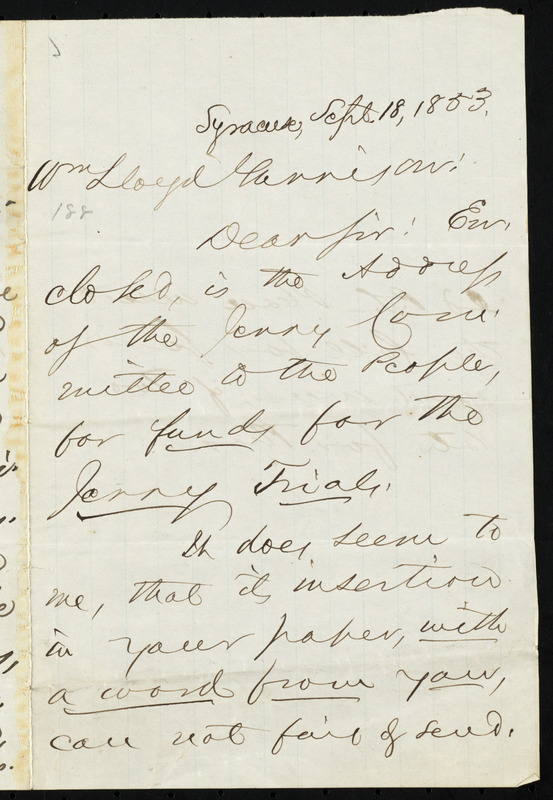 Syracuse, Sept. 18, 1853.
Wm Lloyd Garrison:
188
Dear Sir: En-
closed, is the Address
of the Jerry Com-
mittee to the People,
for funds for the
Jerry Trials.
It does seem to
me, that its insertion
in your paper, with
a word from you,
can not fail of send-